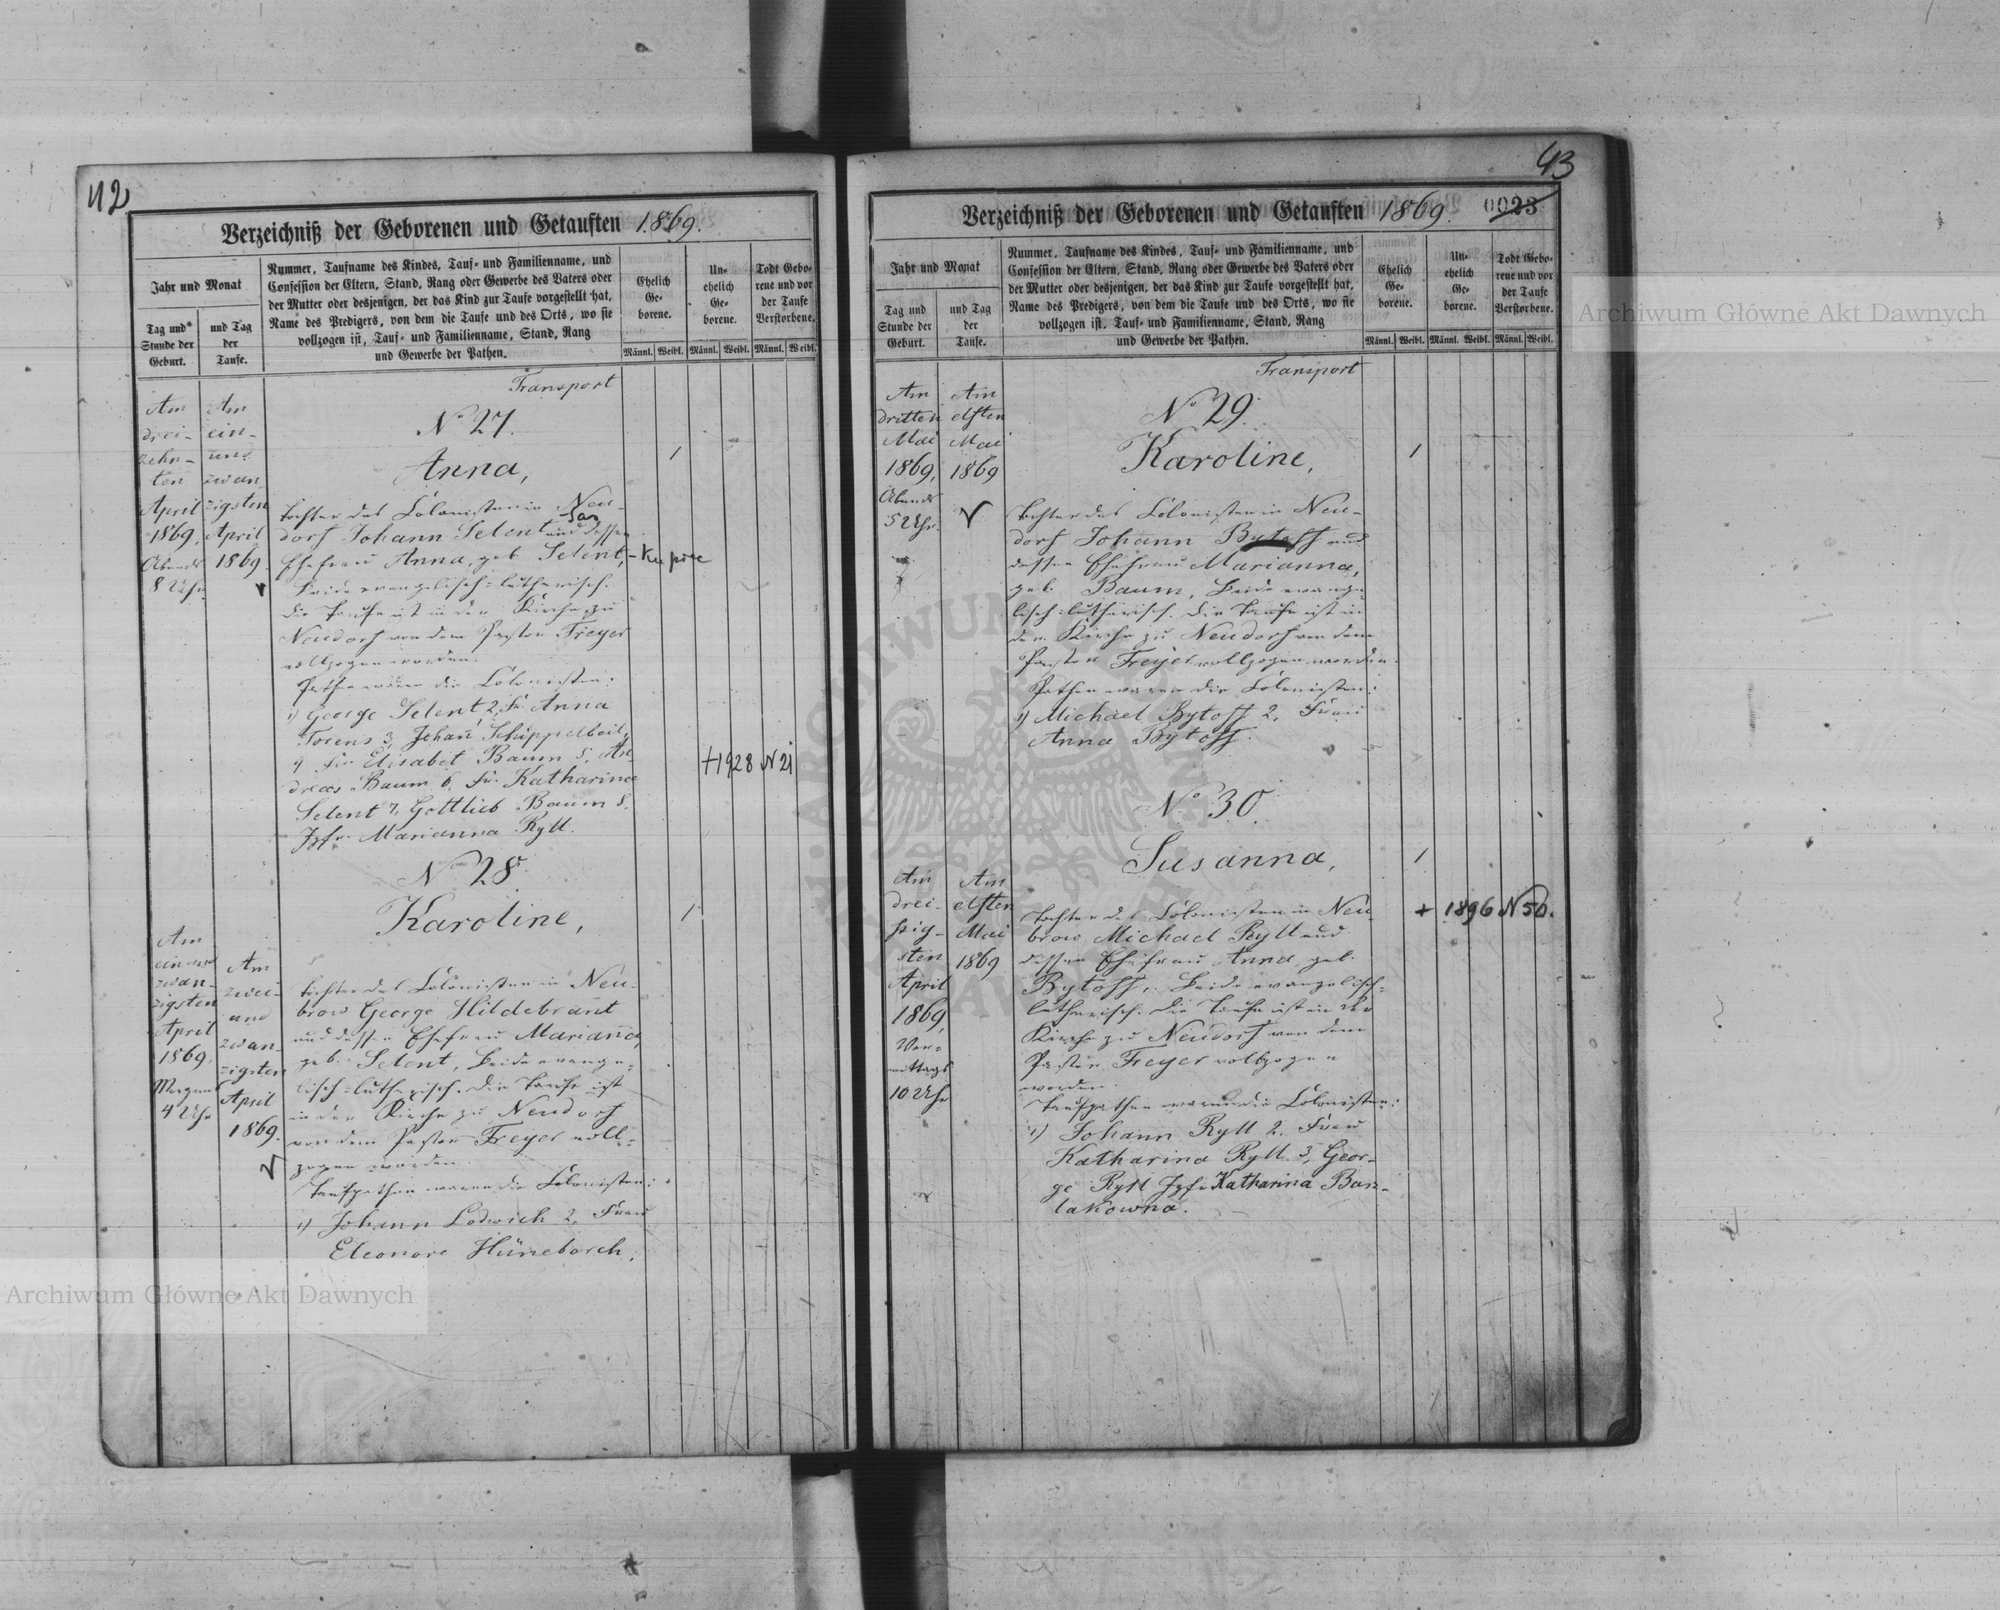 42
Verzeichniß der Geborenen und Getauften 1869.
Jahr und Monat
Tag und Stunde der Geburt.
und Tag der Taufe.
Nummer, Taufname des Kindes, Tauf- und Familienname, und
Confession der Eltern, Stand, Rang oder Gewerbe des Vaters oder
der Mutter oder desjenigen, der das Kind zur Taufe vorgestellt hat,
Name des Predigers, von dem die Taufe und des Orts, wo sie
vollzogen ist, Tauf- und Familienname, Stand, Rang
und Gewerbe der Pathen.
Ehelich Ge-borene.
Un-ehelich Ge-borene.
Todt Gebo-rene und vor der Taufe Verstorbene.
Männl. Weibl. Männl. Weibl. Männl. Weibl.
Transport
Am
drei-
zehn-
ten
April
1869.
Abends
8 Uhr.
Am
ein-
und
zwan-
zigsten
April
1869.
No 27.
Anna,
Tochter des Colonisten in Neu-
dorf Johann Selent und dessen
Ehefrau Anna, geb. Selent,
Beide evangelisch-lutherisch.
Die Taufe ist in der Kirche zu
Neudorf von dem Pastor Freyer
vollzogen worden.
Pathen waren die Colonisten:
1) George Selent 2, Fr. Anna
Torens 3, Johan Schippelbeil,
4 Fr. Elisabet Baum 5, An-
dreas Baum 6, Fr. Katharina
Selent 7, Gottlieb Baum 8,
Jgfr. Marianna Ryll.
+1928 N 21
No 28.
Karoline,
Am
ein und
zwan-
zigsten
April
1869.
Morgens
4 Uhr
Am
zwei-
und
zwan-
zigsten
April
1869.
Tochter des Colonisten in Neu-
brow George Hildebrant
und dessen Ehefrau Marianna,
geb. Selent, Beide evange-
lisch-lutherisch. Die Taufe ist
in der Kirche zu Neudorf
von dem Pastor Freyer voll-
zogen worden.
Taufpathen waren die Colonisten:
1) Johann Lodwich 2, Frau
Eleonore Hüneborch.
43
0023
Verzeichniß der Geborenen und Getauften 1869.
Jahr und Monat
Tag und Stunde der Geburt.
und Tag der Taufe.
Nummer, Taufname des Kindes, Tauf- und Familienname, und
Confession der Eltern, Stand, Rang oder Gewerbe des Vaters oder
der Mutter oder desjenigen, der das Kind zur Taufe vorgestellt hat,
Name des Predigers, von dem die Taufe und des Orts, wo sie
vollzogen ist, Tauf- und Familienname, Stand, Rang
und Gewerbe der Pathen.
Ehelich Ge-borene.
Un-ehelich Ge-borene.
Todt Gebo-rene und vor der Taufe Verstorbene.
Männl. Weibl. Männl. Weibl. Männl. Weibl.
Transport
Am
dritten
Mai
1869,
Abends
5 Uhr.
Am
elften
Mai
1869
No 29.
Karoline,
Tochter des Colonisten in Neu-
dorf Johann Bytoff und
dessen Ehefrau Marianna,
geb. Baum, Beide evange-
lisch-lutherisch. Die Taufe ist in
der Kirche zu Neudorf von dem
Pastor Freyer vollzogen worden.
Pathen waren die Colonisten:
1) Michael Bytoff 2, Frau
Anna Bytoff.
No 30.
Susanna,
Am
drei-
ßig-
sten
April
1869,
Vor-
mittags
10 Uhr
Am
elften
Mai
1869
Tochter des Colonisten in Neu-
brow Michael Ryll und
dessen Ehefrau Anna, geb.
Bytoff, Beide evangelisch-
lutherisch. Die Taufe ist in der
Kirche zu Neudorf von dem
Pastor Freyer vollzogen
worden.
Taufpathen waren die Colonisten:
1) Johann Ryll 2, Frau
Katharina Ryll 3, Geor-
ge Ryll Jgfr. Katharina
+ 1896 N 50.
Archiwum Główne Akt Dawnych
Archiwum Główne Akt Dawnych